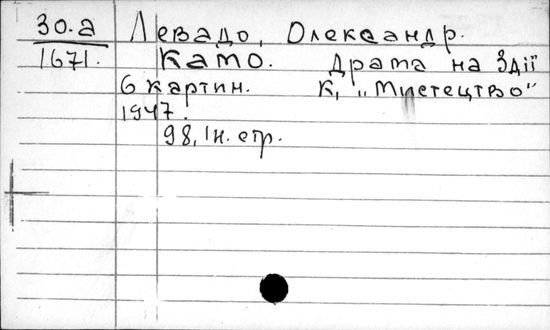 30.а Левадо, Олександр.
1671. Камо. Драма на 3 дії
6 картин. К, „Мистецтво"
1947.
98, Iн. стр.